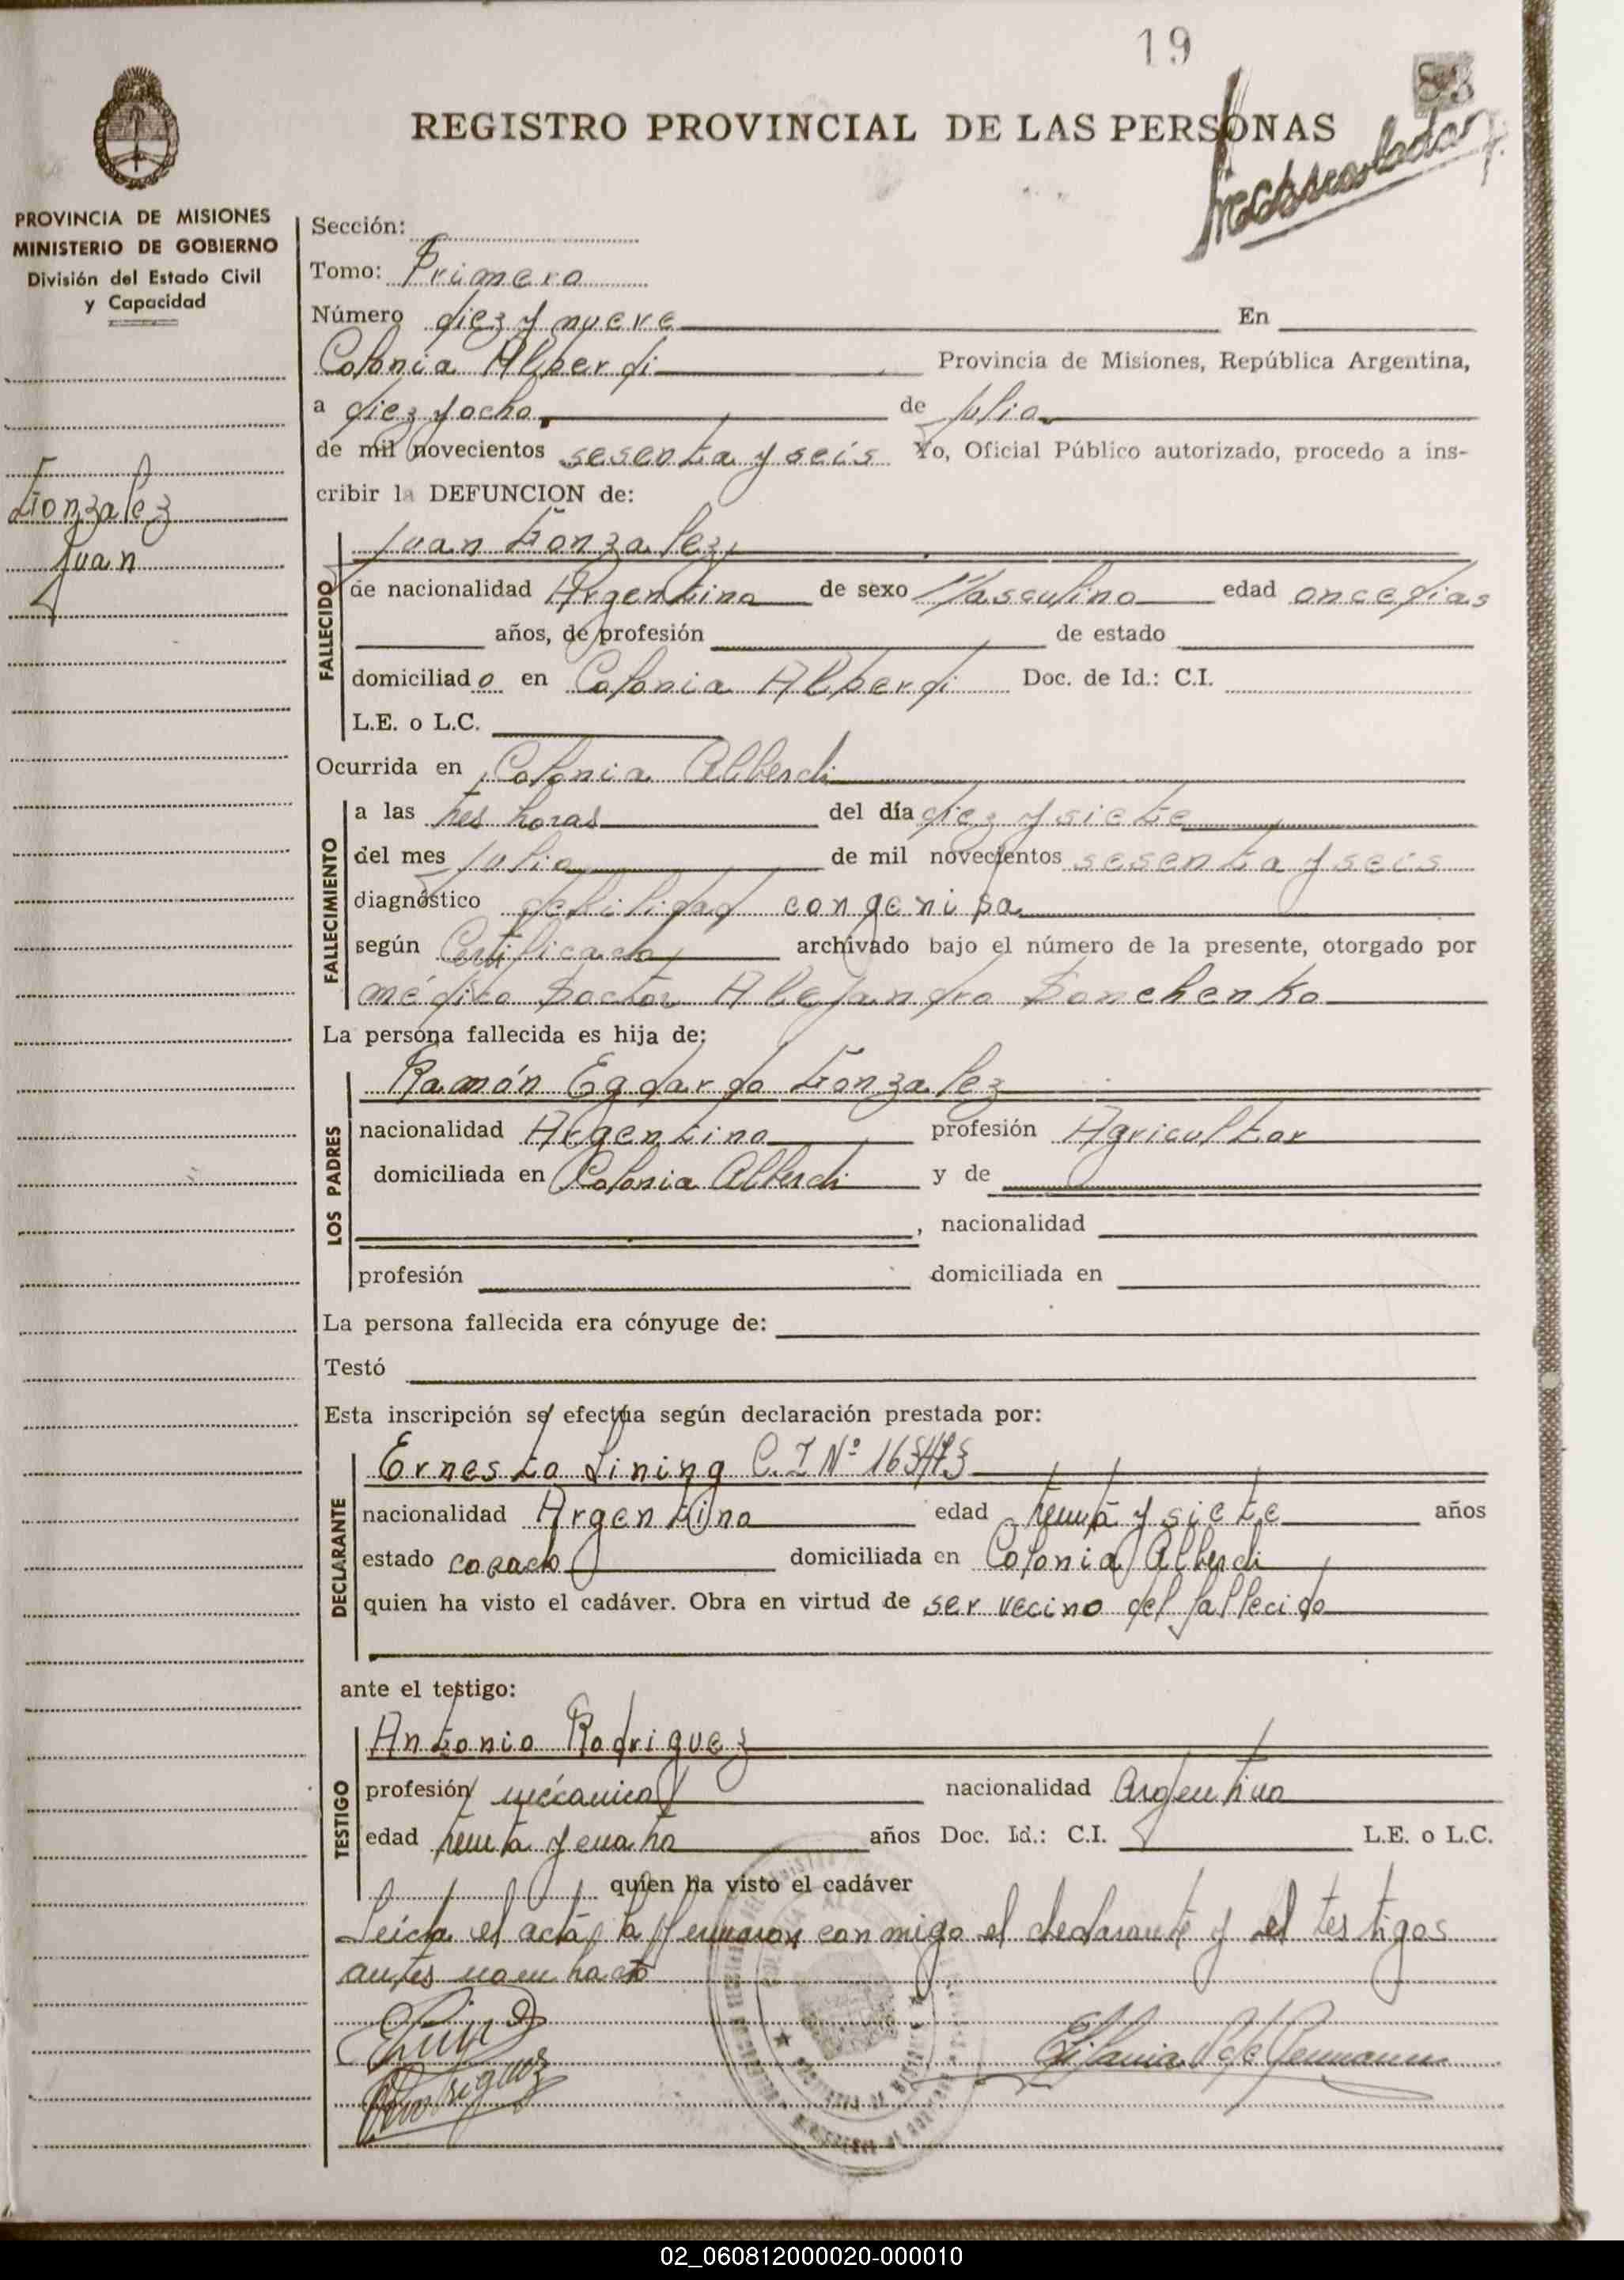 19
83
REGISTRO PROVINCIAL DE LAS PERSONAS
PROVINCIA DE MISIONES
MINISTERIO DE GOBIERNO
División del Estado Civil
y Capacidad
Gonzalez
Juan
Sección:
Tomo: Primero
Número diez y nueve En
Colonia Alberdi Provincia de Misiones, República Argentina,
a diez y ocho de Julio
de mil novecientos sesenta y seis Yo, Oficial Público autorizado, procedo a ins-
cribir la DEFUNCION de:
FALLECIDO
Juan Gonzalez
de nacionalidad Argentina de sexo Masculino edad once dias
años, de profesión de estado
domiciliado en Colonia Alberdi Doc. de Id.: C.I.
L.E. o L.C.
Ocurrida en Colonia Alberdi
FALLECIMIENTO
a las tres horas del día diez y siete
del mes Julio de mil novecientos sesenta y seis
diagnóstico debilidad congenita
según Certificado archivado bajo el número de la presente, otorgado por
médico Doctor Alejandro Bonchenko
La persona fallecida es hija de:
LOS PADRES
Ramón Egdardo Gonzalez
nacionalidad Argentino profesión Agricultor
domiciliada en Colonia Alberdi y de
, nacionalidad
profesión domiciliada en
La persona fallecida era cónyuge de:
Testó
Esta inscripción se efectúa según declaración prestada por:
DECLARANTE
Ernesto Lining C.I Nº
nacionalidad Argentino edad treinta y siete años
estado casado domiciliada en Colonia Alberdi
quien ha visto el cadáver. Obra en virtud de ser vecino del fallecido
ante el testigo:
TESTIGO
Antonio Rodriguez
profesión mécanico nacionalidad Argentino
edad treinta y cuatro años Doc. Id.: C.I. L.E. o L.C.
quien ha visto el cadáver
Leída el acta, la firmaron conmigo el declarante y el testigos
antes nombrado
Rodriguez
02_060812000020-000010